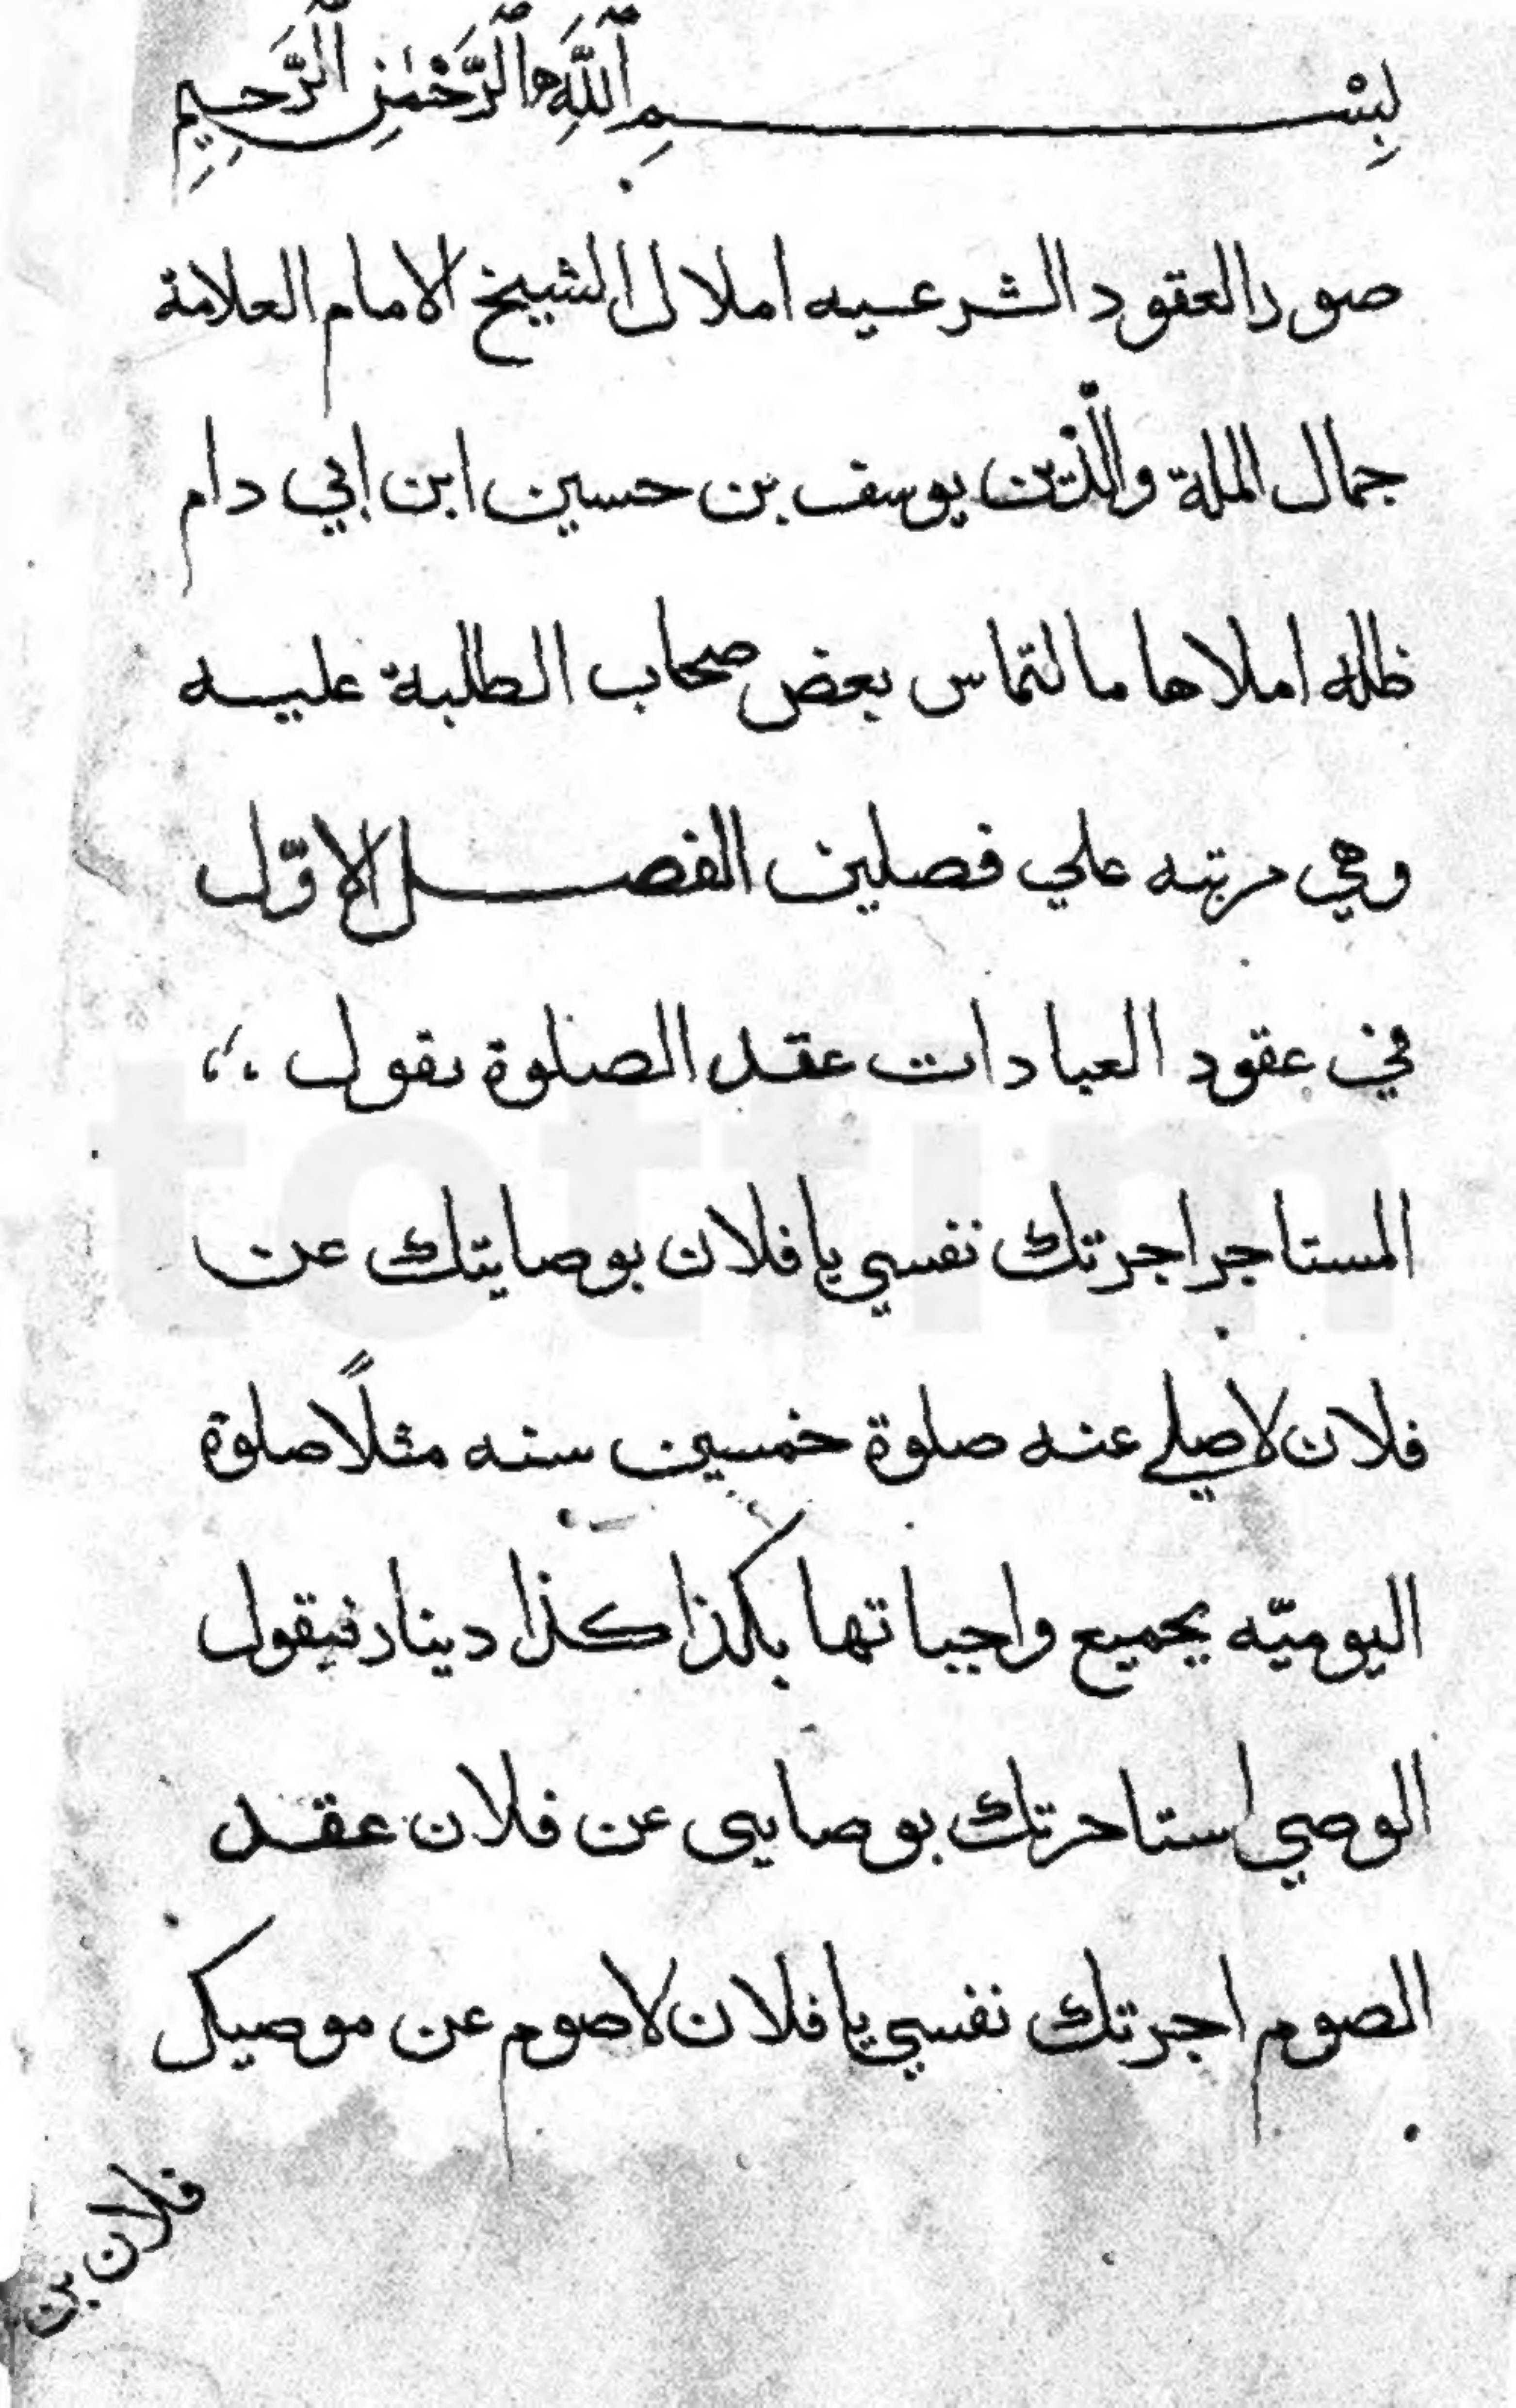 بِسْمِ ٱللَّهِ ٱلرَّحْمَٰنِ ٱلرَّحِيمِ
صور العقود الشرعيه املا ل الشيخ الامام العلامة
جمال الملة والدّين يوسف بن حسين ابن ابي دام
ظله املاها مالتماس بعض صحاب الطلبة عليه
وهي مرتبه علي فصلين الفصل الاوّل
في عقود العبادات عقد الصلوة يقول
المستاجر اجرتك نفسي يا فلان بوصايتك عن
فلان لاصلي عنه صلوة خمسين سنه مثلًا صلوة
اليوميّه بجميع واجباتها بكذا كذا دينار فيقول
الوصي استاجرتك بوصايتي عن فلان عقد
الصوم اجرتك نفسي يا فلان لاصوم عن موصيك
فلان بن
tottim